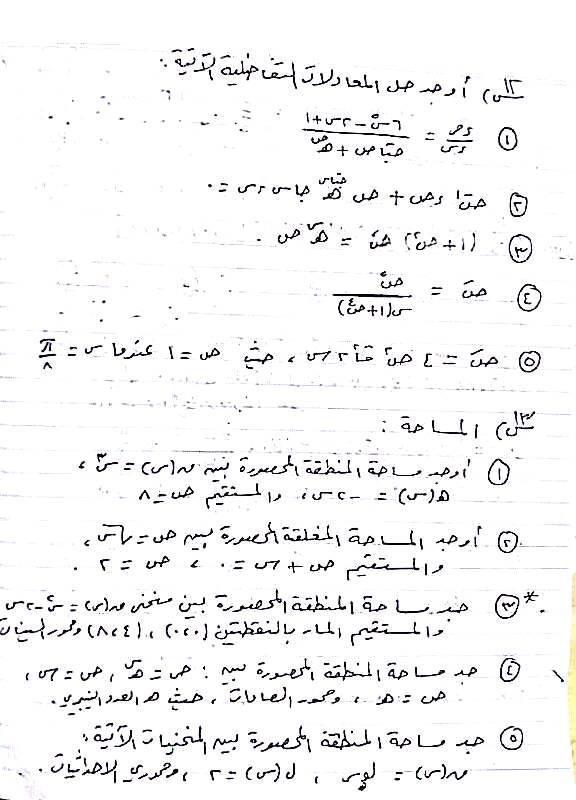 س١٢) أوجد حل المعادلات التفاضلية الآتية :
① دص/دس = (٦س² - ٢س + ١)/(جتاص + هـ^ص)
② ص دص + ص هـ^جتاس جاس دس = ٠
③ (١ + ص²) صَ = هـ^س ص .
④ صَ = ص²/(س(١ + ص²))
⑤ صَ = ٤ ص² قا² ٢س ، حيث ص = ١ عندما س = π/٨
س١٣) المساحة :
① أوجد مساحة المنطقة المحصورة بين ق(س) = س³ ،
هـ(س) = -٢س ، والمستقيم ص = ٨
② أوجد المساحة المغلقة المحصورة بين ص = √س ،
والمستقيم ص + س = ٠ ، ص = ٢ .
*③ جد مساحة المنطقة المحصورة بين منحنى ق(س) = س² - ٢س
والمستقيم المار بالنقطتين (٠،٠) ، (٤،٨) ومحور السينات
④ جد مساحة المنطقة المحصورة بين : ص = هـ^س ، ص = -س ،
ص = هـ ، ومحور الصادات ، حيث هـ العدد النيبيري .
⑤ جد مساحة المنطقة المحصورة بين المنحنيات الآتية :
ق(س) = لو س ، ل(س) = ٢ ، ومحوري الاحداثيات .